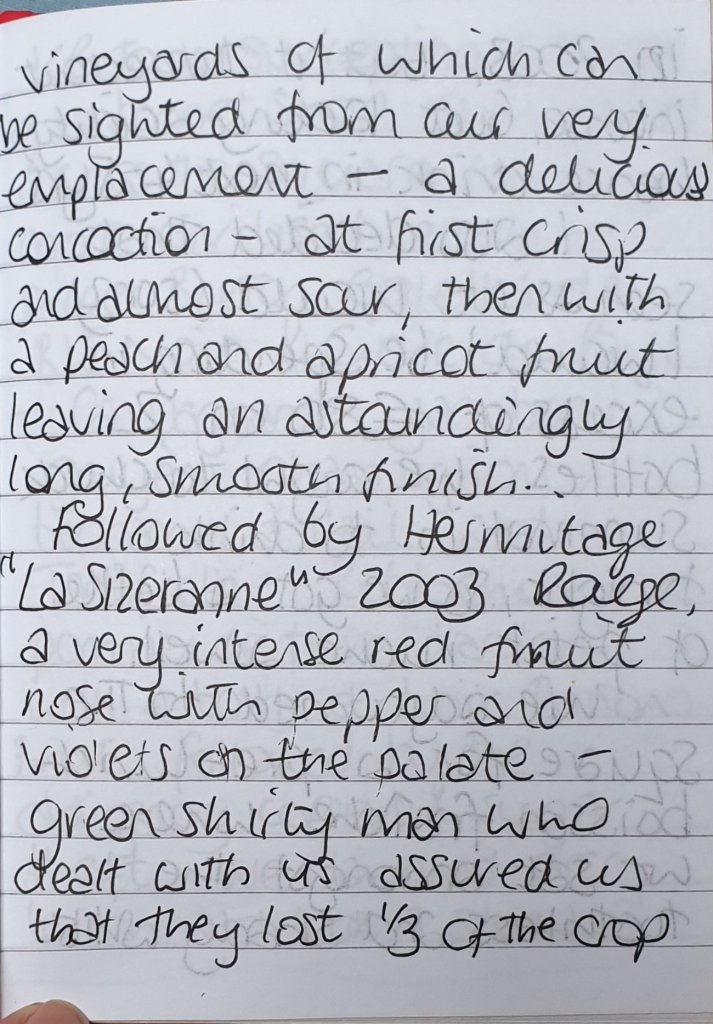 vineyards of which can
be sighted from our very
emplacement – a delicious
concoction – at first crisp
and almost sour, then with
a peach and apricot fruit
leaving an astoundingly
long, smooth finish..
followed by Hermitage
"La Sizeranne" 2003 Rouge,
a very intense red fruit
nose with pepper and
violets on the palate –
green shirty man who
dealt with us assured us
that they lost 1/3 of the crop